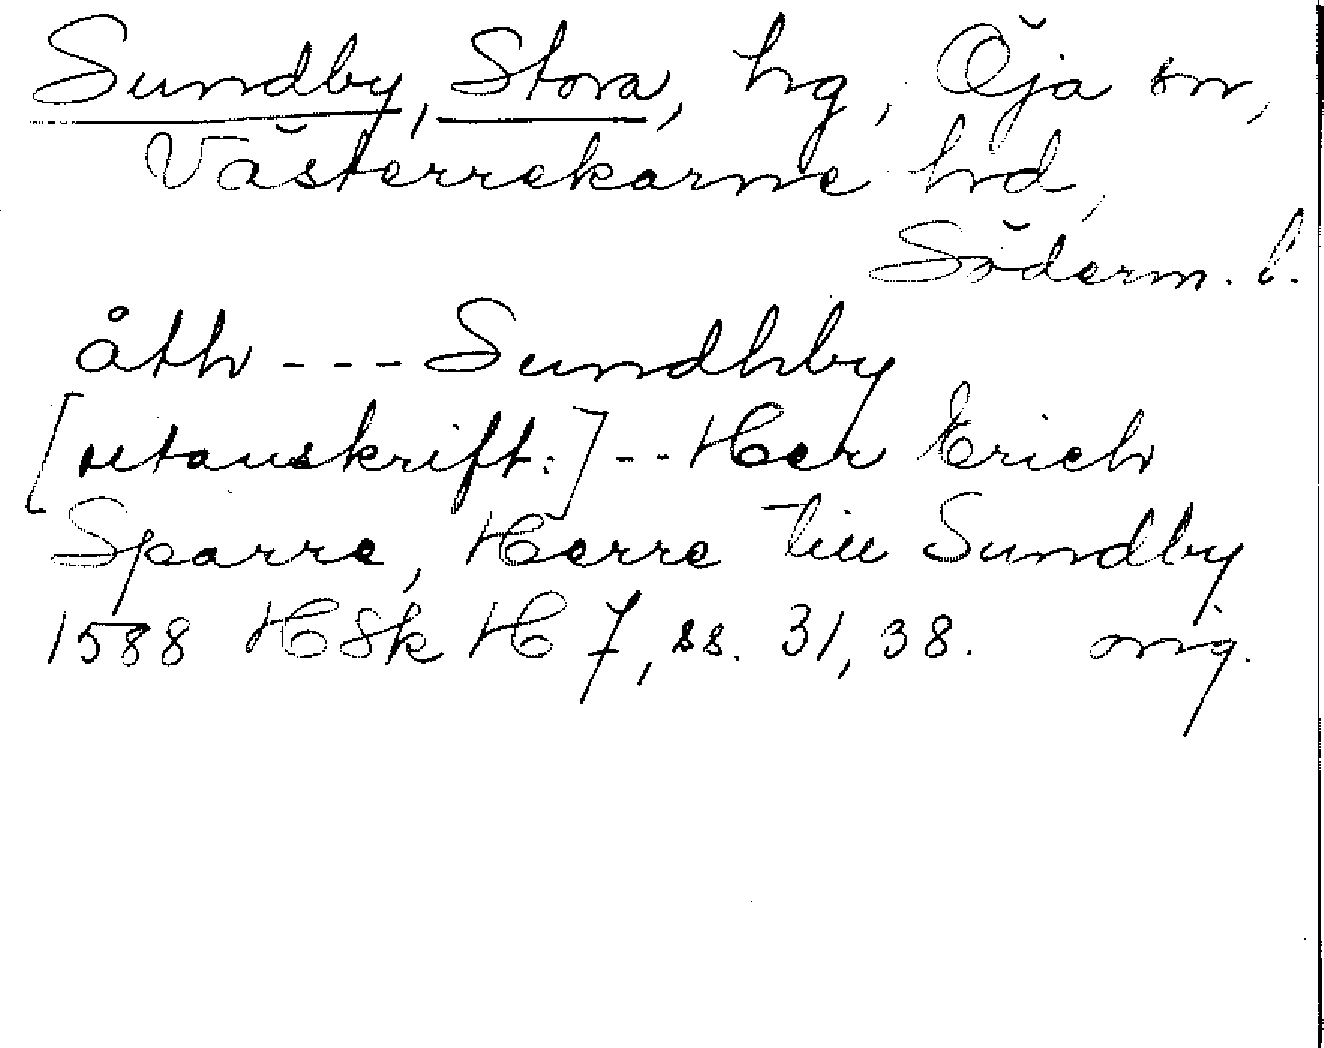 Sundby, Stora, hg, Öja sn,
Västerrekarne hrd,
Söderm. l.
åth --- Sundhby
[utanskrift:] -- Her Erich
Sparre, Herre till Sundby
1588 HSk H 7, ss. 31, 38. orig.